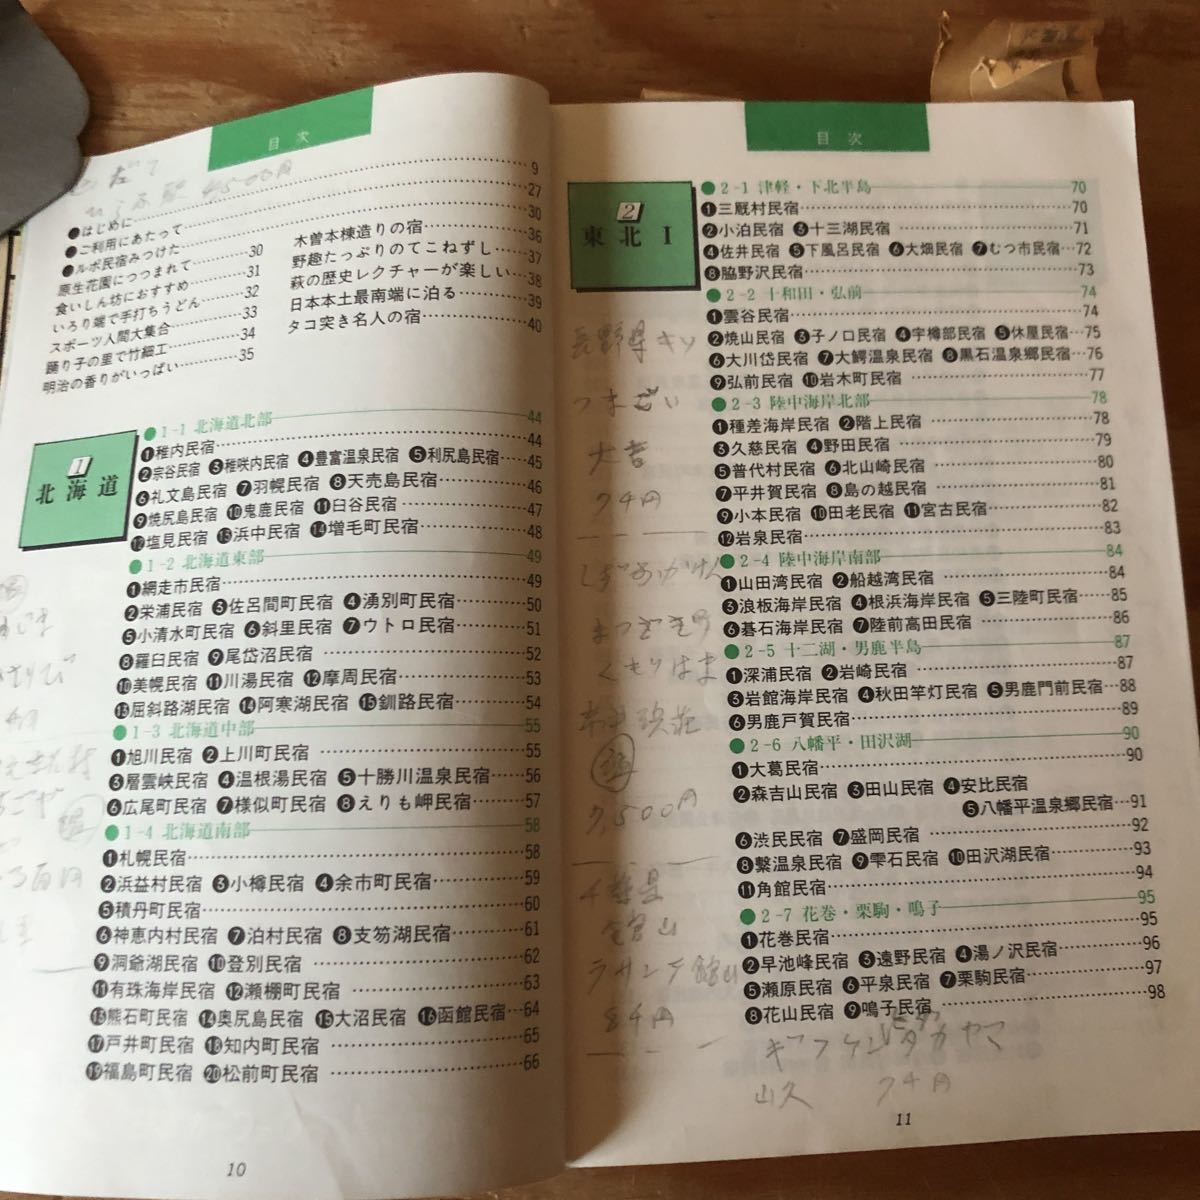 目次
●はじめに 9
●ご利用にあたって 27
●ルポ民宿みつけた 30
原生花園につつまれて 30
食いしん坊におすすめ 31
いろり端で手打ちうどん 32
スポーツ人間大集合 33
踊り子の里で竹細工 34
明治の香りがいっぱい 35
木曽本棟造りの宿 36
野趣たっぷりのてこねずし 37
萩の歴史レクチャーが楽しい 38
日本本土最南端に泊る 39
タコ突き名人の宿 40
1
北海道
●1-1 北海道北部 44
❶稚内民宿 44
❷宗谷民宿 ❸稚咲内民宿 ❹豊富温泉民宿 ❺利尻島民宿 45
❻礼文島民宿 ❼羽幌民宿 ❽天売島民宿 46
❾焼尻島民宿 ❿鬼鹿民宿 ⓫臼谷民宿 47
⓬塩見民宿 ⓭浜中民宿 ⓮増毛町民宿 48
●1-2 北海道東部 49
❶網走市民宿 49
❷栄浦民宿 ❸佐呂間町民宿 ❹湧別町民宿 50
❺小清水町民宿 ❻斜里民宿 ❼ウトロ民宿 51
❽羅臼民宿 ❾尾岱沼民宿 52
❿美幌民宿 ⓫川湯民宿 ⓬摩周民宿 53
⓭屈斜路湖民宿 ⓮阿寒湖民宿 ⓯釧路民宿 54
●1-3 北海道中部 55
❶旭川民宿 ❷上川町民宿 55
❸層雲峡民宿 ❹温根湯民宿 ❺十勝川温泉民宿 56
❻広尾町民宿 ❼様似町民宿 ❽えりも岬民宿 57
●1-4 北海道南部 58
❶札幌民宿 58
❷浜益村民宿 ❸小樽民宿 ❹余市町民宿 59
❺積丹町民宿 60
❻神恵内村民宿 ❼泊村民宿 ❽支笏湖民宿 61
❾洞爺湖民宿 ❿登別民宿 62
⓫有珠海岸民宿 ⓬瀬棚町民宿 63
⓭熊石町民宿 ⓮奥尻島民宿 ⓯大沼民宿 ⓰函館民宿 64
⓱戸井町民宿 ⓲知内町民宿 65
⓳福島町民宿 ⓴松前町民宿 66
10
目次
2
東北 I
●2-1 津軽・下北半島 70
❶三厩村民宿 70
❷小泊民宿 ❸十三湖民宿 71
❹佐井民宿 ❺下風呂民宿 ❻大畑民宿 ❼むつ市民宿 72
❽脇野沢民宿 73
●2-2 十和田・弘前 74
❶雲谷民宿 74
❷焼山民宿 ❸子ノ口民宿 ❹宇樽部民宿 ❺休屋民宿 75
❻大川岱民宿 ❼大鰐温泉民宿 ❽黒石温泉郷民宿 76
❾弘前民宿 ❿岩木町民宿 77
●2-3 陸中海岸北部 78
❶種差海岸民宿 ❷階上民宿 78
❸久慈民宿 ❹野田民宿 79
❺普代村民宿 ❻北山崎民宿 80
❼平井賀民宿 ❽島の越民宿 81
❾小本民宿 ❿田老民宿 ⓫宮古民宿 82
⓬岩泉民宿 83
●2-4 陸中海岸南部 84
❶山田湾民宿 ❷船越湾民宿 84
❸浪板海岸民宿 ❹根浜海岸民宿 ❺三陸町民宿 85
❻碁石海岸民宿 ❼陸前高田民宿 86
●2-5 十二湖・男鹿半島 87
❶深浦民宿 ❷岩崎民宿 87
❸岩館海岸民宿 ❹秋田竿灯民宿 ❺男鹿門前民宿 88
❻男鹿戸賀民宿 89
●2-6 八幡平・田沢湖 90
❶大葛民宿 90
❷森吉山民宿 ❸田山民宿 ❹安比民宿
❺八幡平温泉郷民宿 91
❻渋民民宿 ❼盛岡民宿 92
❽繋温泉民宿 ❾雫石民宿 ❿田沢湖民宿 93
⓫角館民宿 94
●2-7 花巻・栗駒・鳴子 95
❶花巻民宿 95
❷早池峰民宿 ❸遠野民宿 ❹湯ノ沢民宿 96
❺瀬原民宿 ❻平泉民宿 ❼栗駒民宿 97
❽花山民宿 ❾鳴子民宿 98
長野県キソ
つまごい
大吉
7千円
7,500円
千葉県
ラサンテ館山
8千円
ギフケンヒダタカヤマ
山久 7千円
11